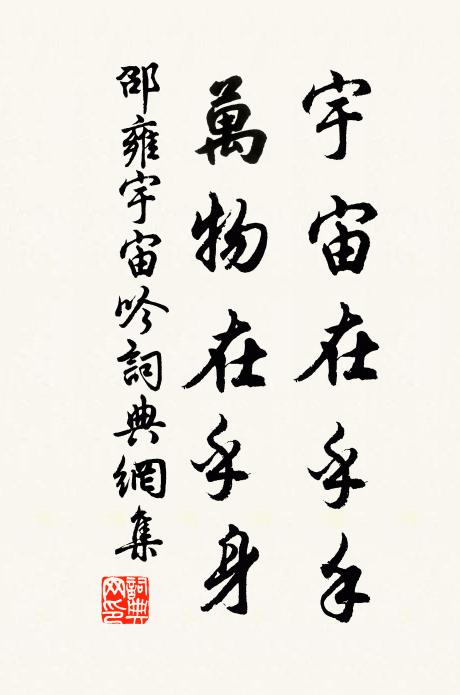 宇宙在乎手
萬物在乎身
邵雍宇宙吟詞典網集
詞典
网印